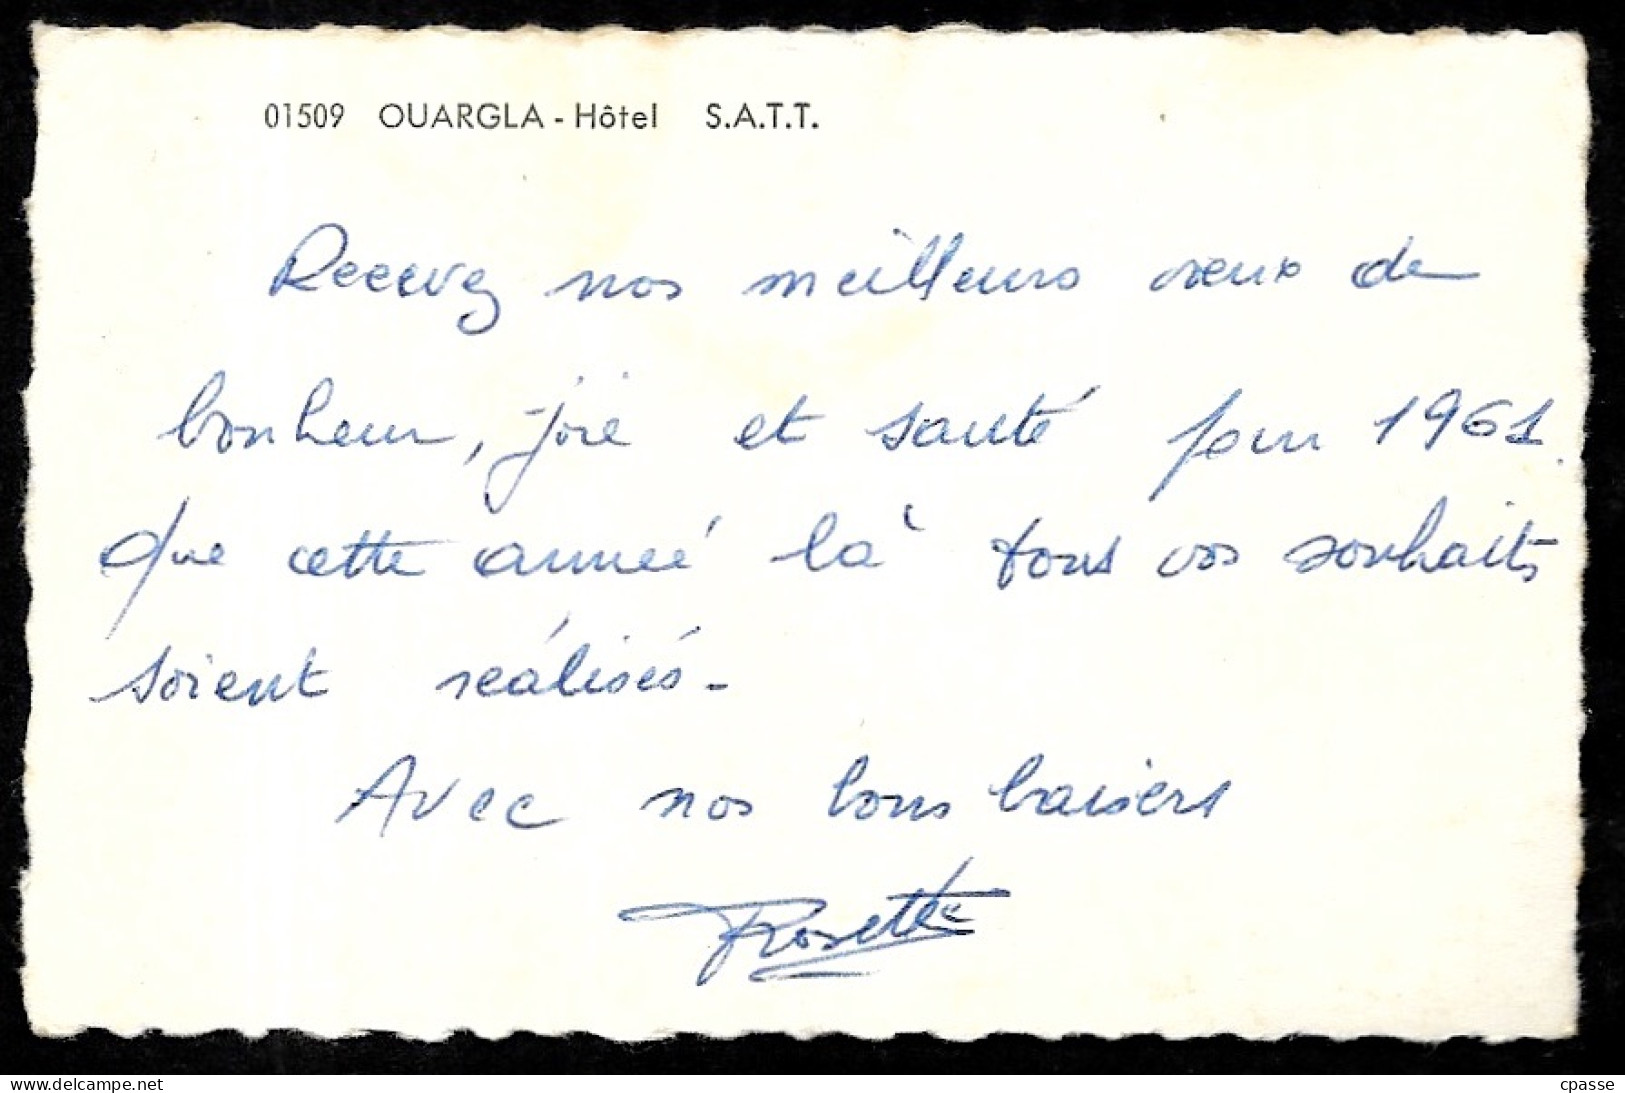 01509 OUARGLA - Hôtel S.A.T.T.
Recevez nos meilleurs vœux de
bonheur, joie et santé pour 1961.
Que cette année là tous vos souhaits
soient réalisés -
Avec nos bons baisers
Rosette
delcampe.net
cpasse